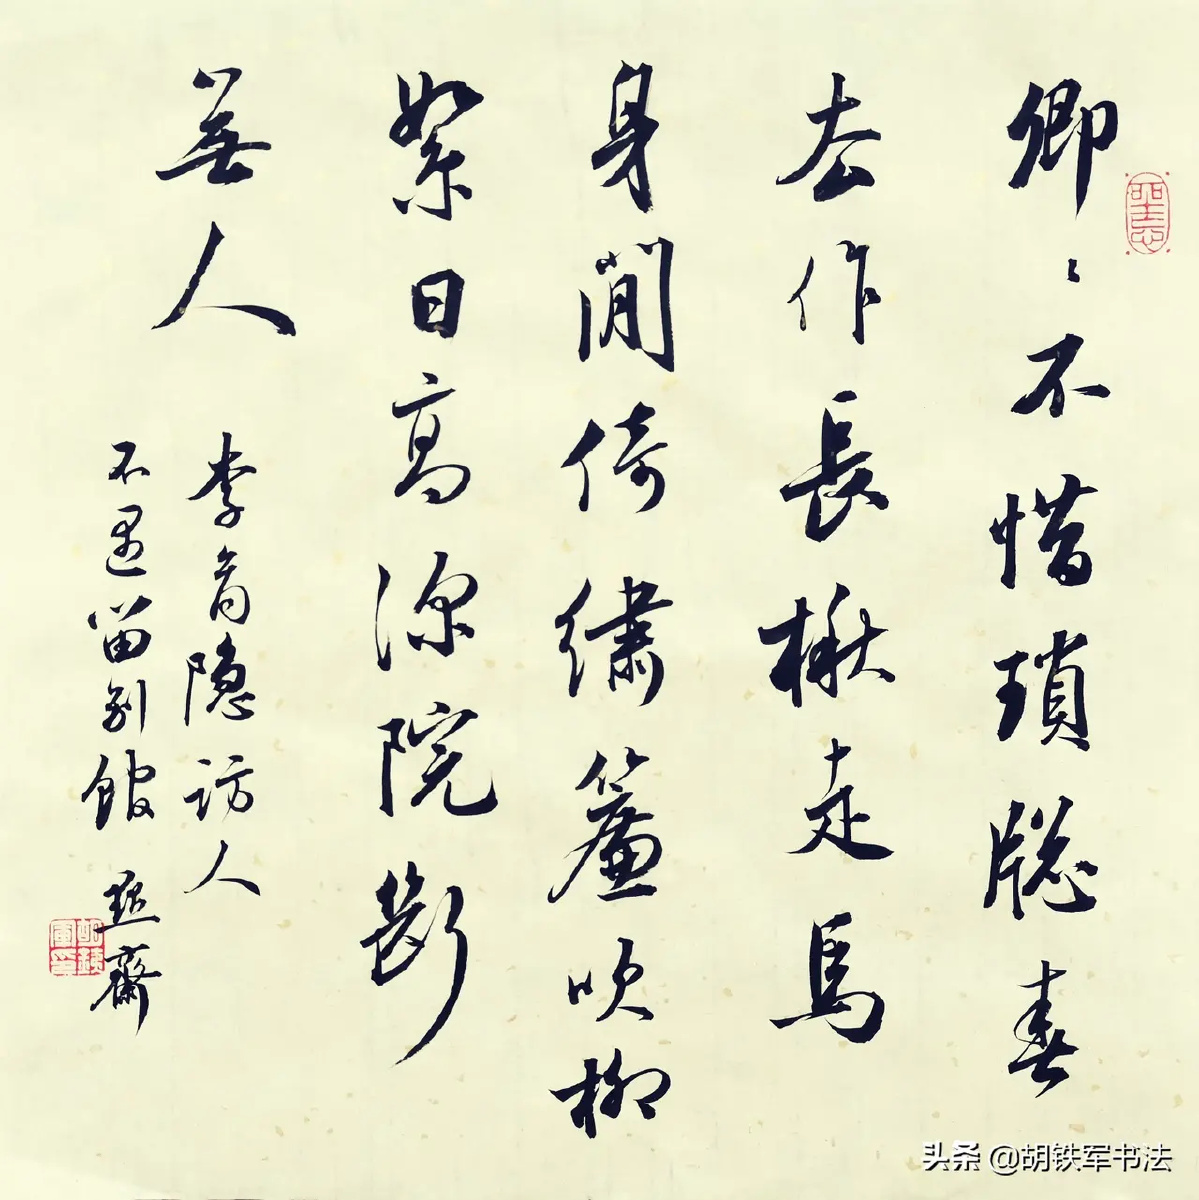 卿〻不惜瑣牕春
去作長楸走馬
身閒倚繡簾吹柳
絮日高深院斷
無人
李商隐訪人
不遇留别館 齋
胡鐵軍印
头条 @胡铁军书法